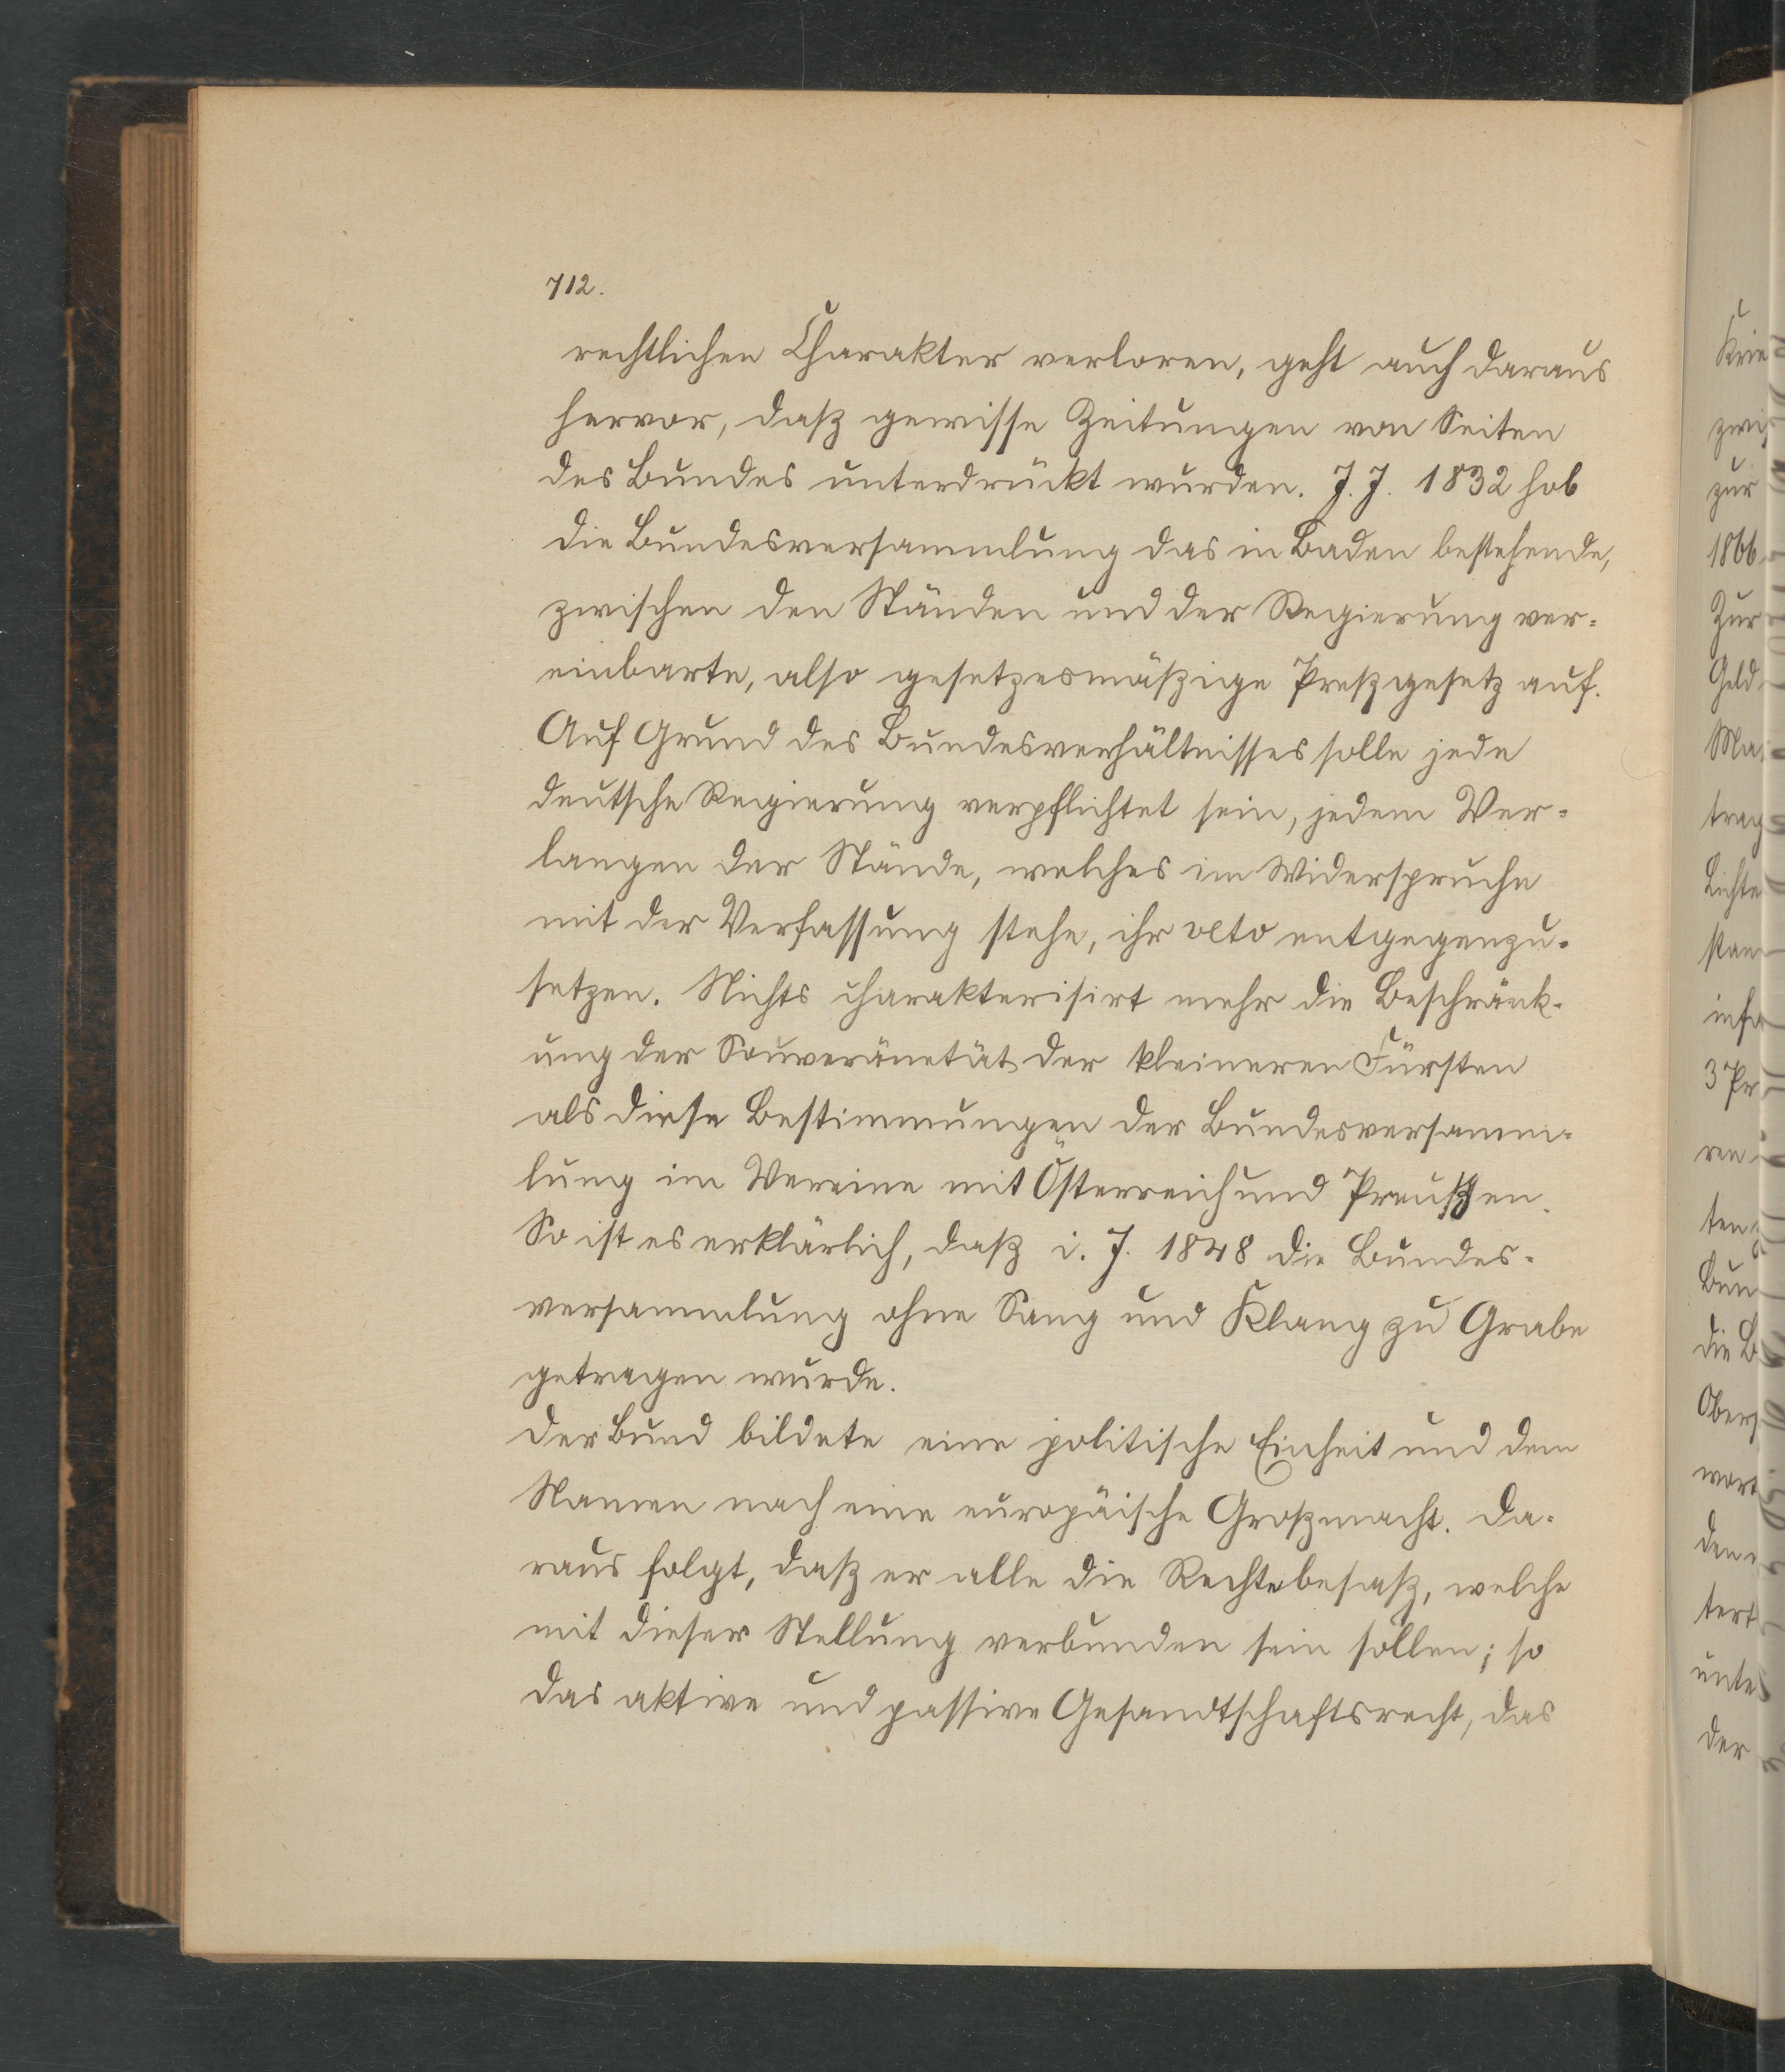 712.
rechtlichen Charakter verloren, geht auch daraus
hervor, daß gewisse Zeitungen von Seiten
des Bundes unterdrückt wurden. J. J. 1832 hob
die Bundesversammlung das in Baden bestehende,
zwischen den Ständen und der Regierung ver=
einbarte, also gesetzesmäßige Preßgesetz auf.
Auf Grund des Bundesverhältnisses solle jede
deutsche Regierung verpflichtet sein, jedem Ver=
langen der Stände, welches im Widerspruche
mit der Verfassung stehe, ihr veto entgegenzu=
setzen. Nichts charakterisirt mehr die Beschränk=
ung der Souveränetät der kleineren Fürsten
als diese Bestimmungen der Bundesversamm=
lung im Vereine mit Österreich und Preußen.
So ist es erklärlich, daß i. J. 1848 die Bundes=
versammlung ohne Sang und Klang zu Grabe
getragen wurde.
Der Bund bildete eine politische Einheit und dem
Namen nach eine europäische Großmacht. Da=
raus folgt, daß er alle die Rechte besaß, welche
mit dieser Stellung verbunden sein sollen; so
das aktive und passive Gesandtschaftsrecht, das
Krie
zwi
zur
1866
Zur
Geld
Ma
trag
Lichte
stan
info
3 Pr
ren
ten
Bun
die B
Ober
wort
den
tert
unte
der